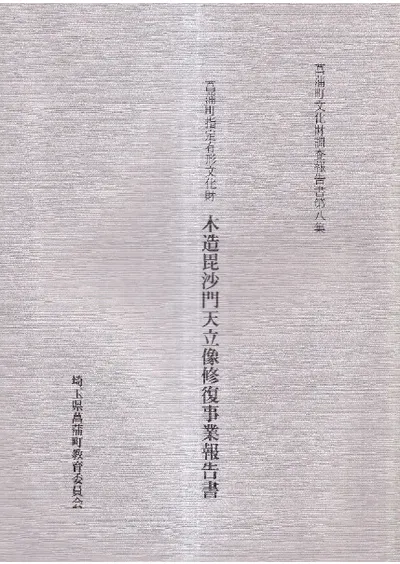 菖蒲町文化財調査報告書第八集
菖蒲町指定有形文化財 木造毘沙門天立像修復事業報告書
埼玉県菖蒲町教育委員会